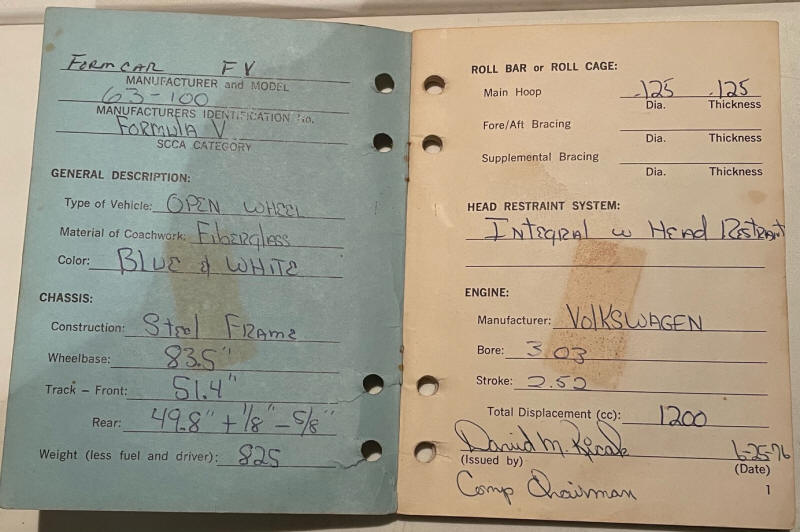 FormCAR FV
MANUFACTURER and MODEL
63-100
MANUFACTURERS IDENTIFICATION No.
FORMULA V
SCCA CATEGORY
GENERAL DESCRIPTION:
Type of Vehicle: OPEN WHEEL
Material of Coachwork: Fiberglass
Color: BLUE & WHITE
CHASSIS:
Construction: Steel FRAME
Wheelbase: 83.5"
Track – Front: 51.4"
Rear: 49.8" + 1/8" – 5/8"
Weight (less fuel and driver): 825
ROLL BAR or ROLL CAGE:
Main Hoop .125 .125
Dia. Thickness
Fore/Aft Bracing
Dia. Thickness
Supplemental Bracing
Dia. Thickness
HEAD RESTRAINT SYSTEM:
INTEGRAL w HEAD RESTRAINT
ENGINE:
Manufacturer: VOLKSWAGEN
Bore: 3.03
Stroke: 2.52
Total Displacement (cc): 1200
David M. 6-25-76
(Issued by) (Date)
Comp Chairman
1